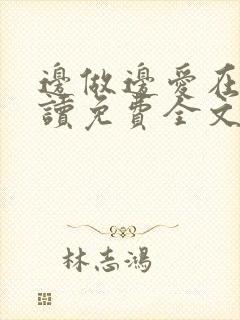 邊做邊愛在
讀免費全文
林志鴻